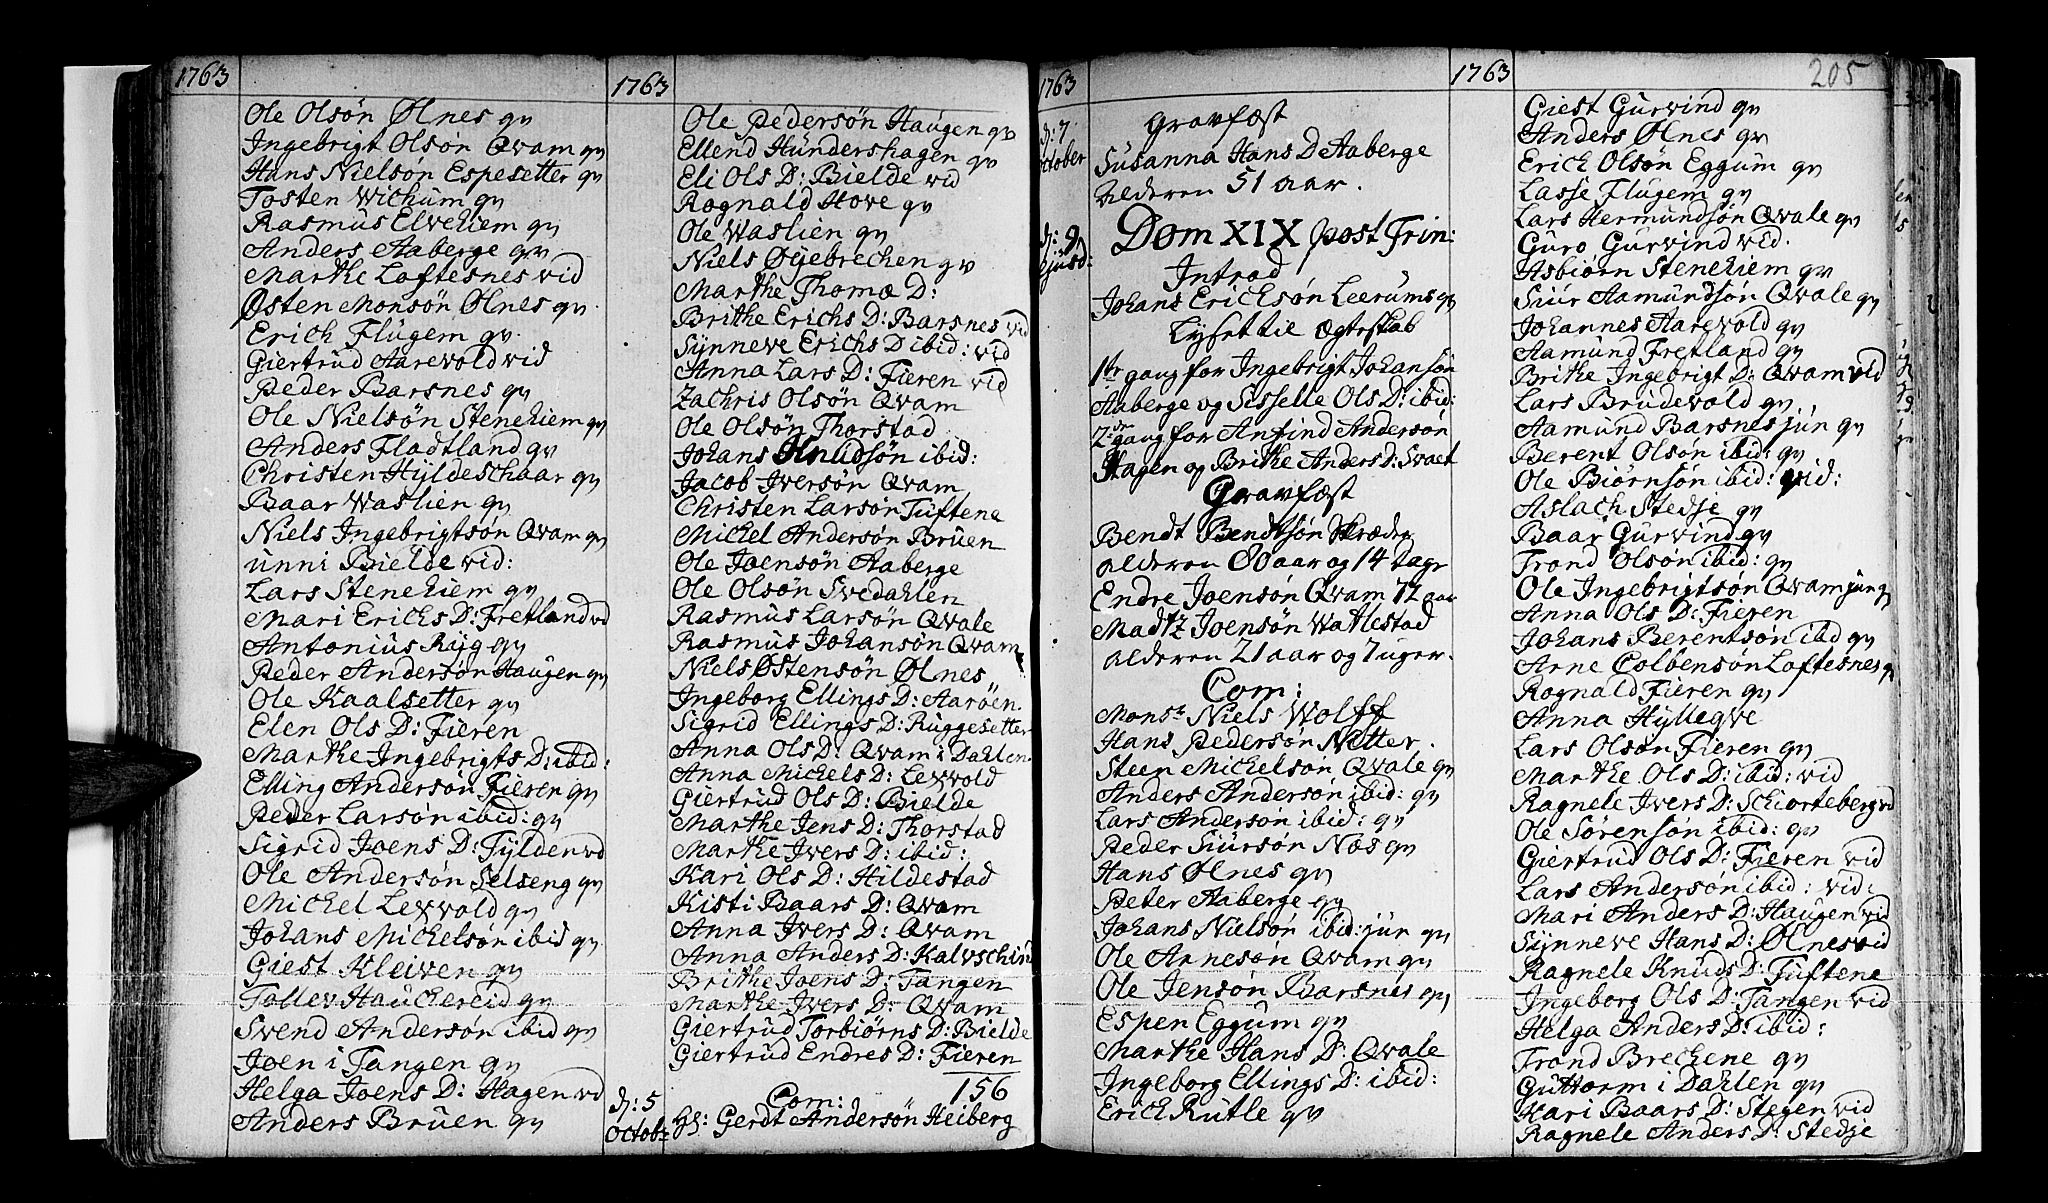 1763
Ole Olsön Ølnes qv
Ingebrigt Olsön Qvam qv
Hans Nielsön Espesetter qv
Tosten Wichum qv
Rasmus Elvehiem qv
Anders Aaberge qv
Marthe Loftesnes vid
Østen Monsön Ølnes qv.
Erich Flugem qv.
Giertrud Aarevold vid
Peder Barsnes qv
Ole Nielsön Stenehiem qv
Anders Fladtland qv
Christen Hyldeschaar qv
Baar Waslien qv
Niels Ingebrigtsön Qvam qv
unni Bielde vid:
Lars Stenehiem qv
Mari Erichs D: Fretland vd
Antonius Ryg qv
Peder Andersön Haugen qv
Ole Kaalsetter qv
Elen Ols D: Fieren
Marthe Ingebrigts D: ibid:
Elling Andersön Fieren qv
Peder Larsön ibid: qv
Sigrid Joens D: Fylden vd
Ole Andersön Selseng qv
Michel Lexvold qv
Johans Michelsön ibid qv
Giest Kleiven qv
Tollev Hauchereid qv
Svend Andersön ibid qv
Joen i Tangen qv
Helga Joens D: Hagen vd
Anders Bruen qv
1763
Ole Pedersön Haugen qv
Ellend Hundershagen qv
Eli Ols D: Bielde vid
Rognald Hove qv
Ole Waslien qv
Niels Øyebrechen qv
Marthe Thomæ D:
Brithe Erichs D: Barsnes vid
Synneve Erichs D ibid: vid
Anna Lars D: Fieren vid
Zachris Olsön Qvam
Ole Olsön Thorstad
Johans Knudsön ibid:
Jacob Iversön Qvam
Christen Larsön Tuftena
Michel Andersön Bruen
Ole Joensön Aaberge
Ole Olsön Svedahlen
Rasmus Larsön Qvale
Rasmus Johansön Qvam
Niels Østensön Ølnes
Ingeborg Ellings D: Aaröen
Sigrid Ellings D: Ruggesetter
Anna Ols D: Qvam i Dahlen
Anna Michels D: Lexvold
Giertrud Ols D: Bielde
Marthe Jens D: Thorstad
Marthe Ivers D: ibid:
Kari Ols D: Hildestad
Kisti Baars D: Qvam
Anna Ivers D: Qvam
Anna Anders D: Kalvschin
Brithe Joens D: Tangen
Marthe Ivers D: Qvam
Giertrud Torbiörns D: Bielde
Giertrud Endres D: Fieren
156
d: 5 Octobr
Com:
Gerdt Andersön Heiberg
1763
d: 7 October
Gravfæst
Susanna Hans D Aaberge
alderen 51 aar.
d: 9
Dom XIX post Trin:
Introd
Johans Erichsön Leerums qv
Lyset til Ægteskab
1te gang for Ingebrigt Johansön
Aaberge og Sisselle Ols D: ibid:
2den gang for Anfind Andersön
Hagen og Brithe Anders D: Svaet
Gravfæst
Bendt Bendtsön Skræder
alderen 80 aar og 14 dage
Endre Joensön Qvam 72 aar
Madtz Joensön Watlestad
alderen 21 aar og 7 uger.
Com:
Monsr Niels Wolff
Hans Pedersön Nitter.
Steen Michelsön Qvale qv
Anders Andersön ibid: qv
Lars Anderson ibid: qv
Peder Siursön Næs qv
Hans Ølnes qv
Peter Aaberge qv
Johans Nielsön ibid: jun qv
Ole Arnesön Qvam qv
Ole Jensön Barsnes qv
Espen Eggum qv
Marthe Hans D: Qvale
Ingeborg Ellings D: ibid:
Erich Rutle qv
1763
205
Giest Gurvind qv
Anders Ølnes qv
Erich Olsön Eggum qv
Lasse Flugem qv
Lars Hermundsön Qvale qv
Guro Gurvind vid.
Asbiörn Stenehiem qv
Siur Aamundsön Qvale qv
Johannes Aarevold qv
Aamund Fretland qv
Brithe Ingebrigt D: Qvam vid
Lars Brudevold qv
Aamund Barsnes jun qv
Berent Olsön ibid: qv
Ole Biörnsön ibid: vid:
Aslach Stedje qv
Baar Gurvind qv
Trond Olsön ibid: qv
Ole Ingebrigtsön Qvam jun qv
Anna Ols D: Fieren
Johans Berentsön ibd qv
Arne Colbensön Loftesnes q
Rognald Fieren qv
Anna Hyllegve
Lars Olsön Fieren qv
Marthe Ols D: ibid: vid
Ragnele Ivers D: Schiorteberg vd
Ole Sörensön ibid: qv
Giertrud Ols D: Fieren vid
Lars Andersön ibid: vid:
Mari Anders D: Haugen vid
Synneve Hans D: Ølnes vid
Ragnele Knuds D: Tuftene
Ingeborg Ols D: Tangen vid
Helga Anders D: ibid:
Trond Brechene qv
Guttorm i Dahlen qv
Kari Baars D: Stegen vid
Ragnele Anders D: Stedje